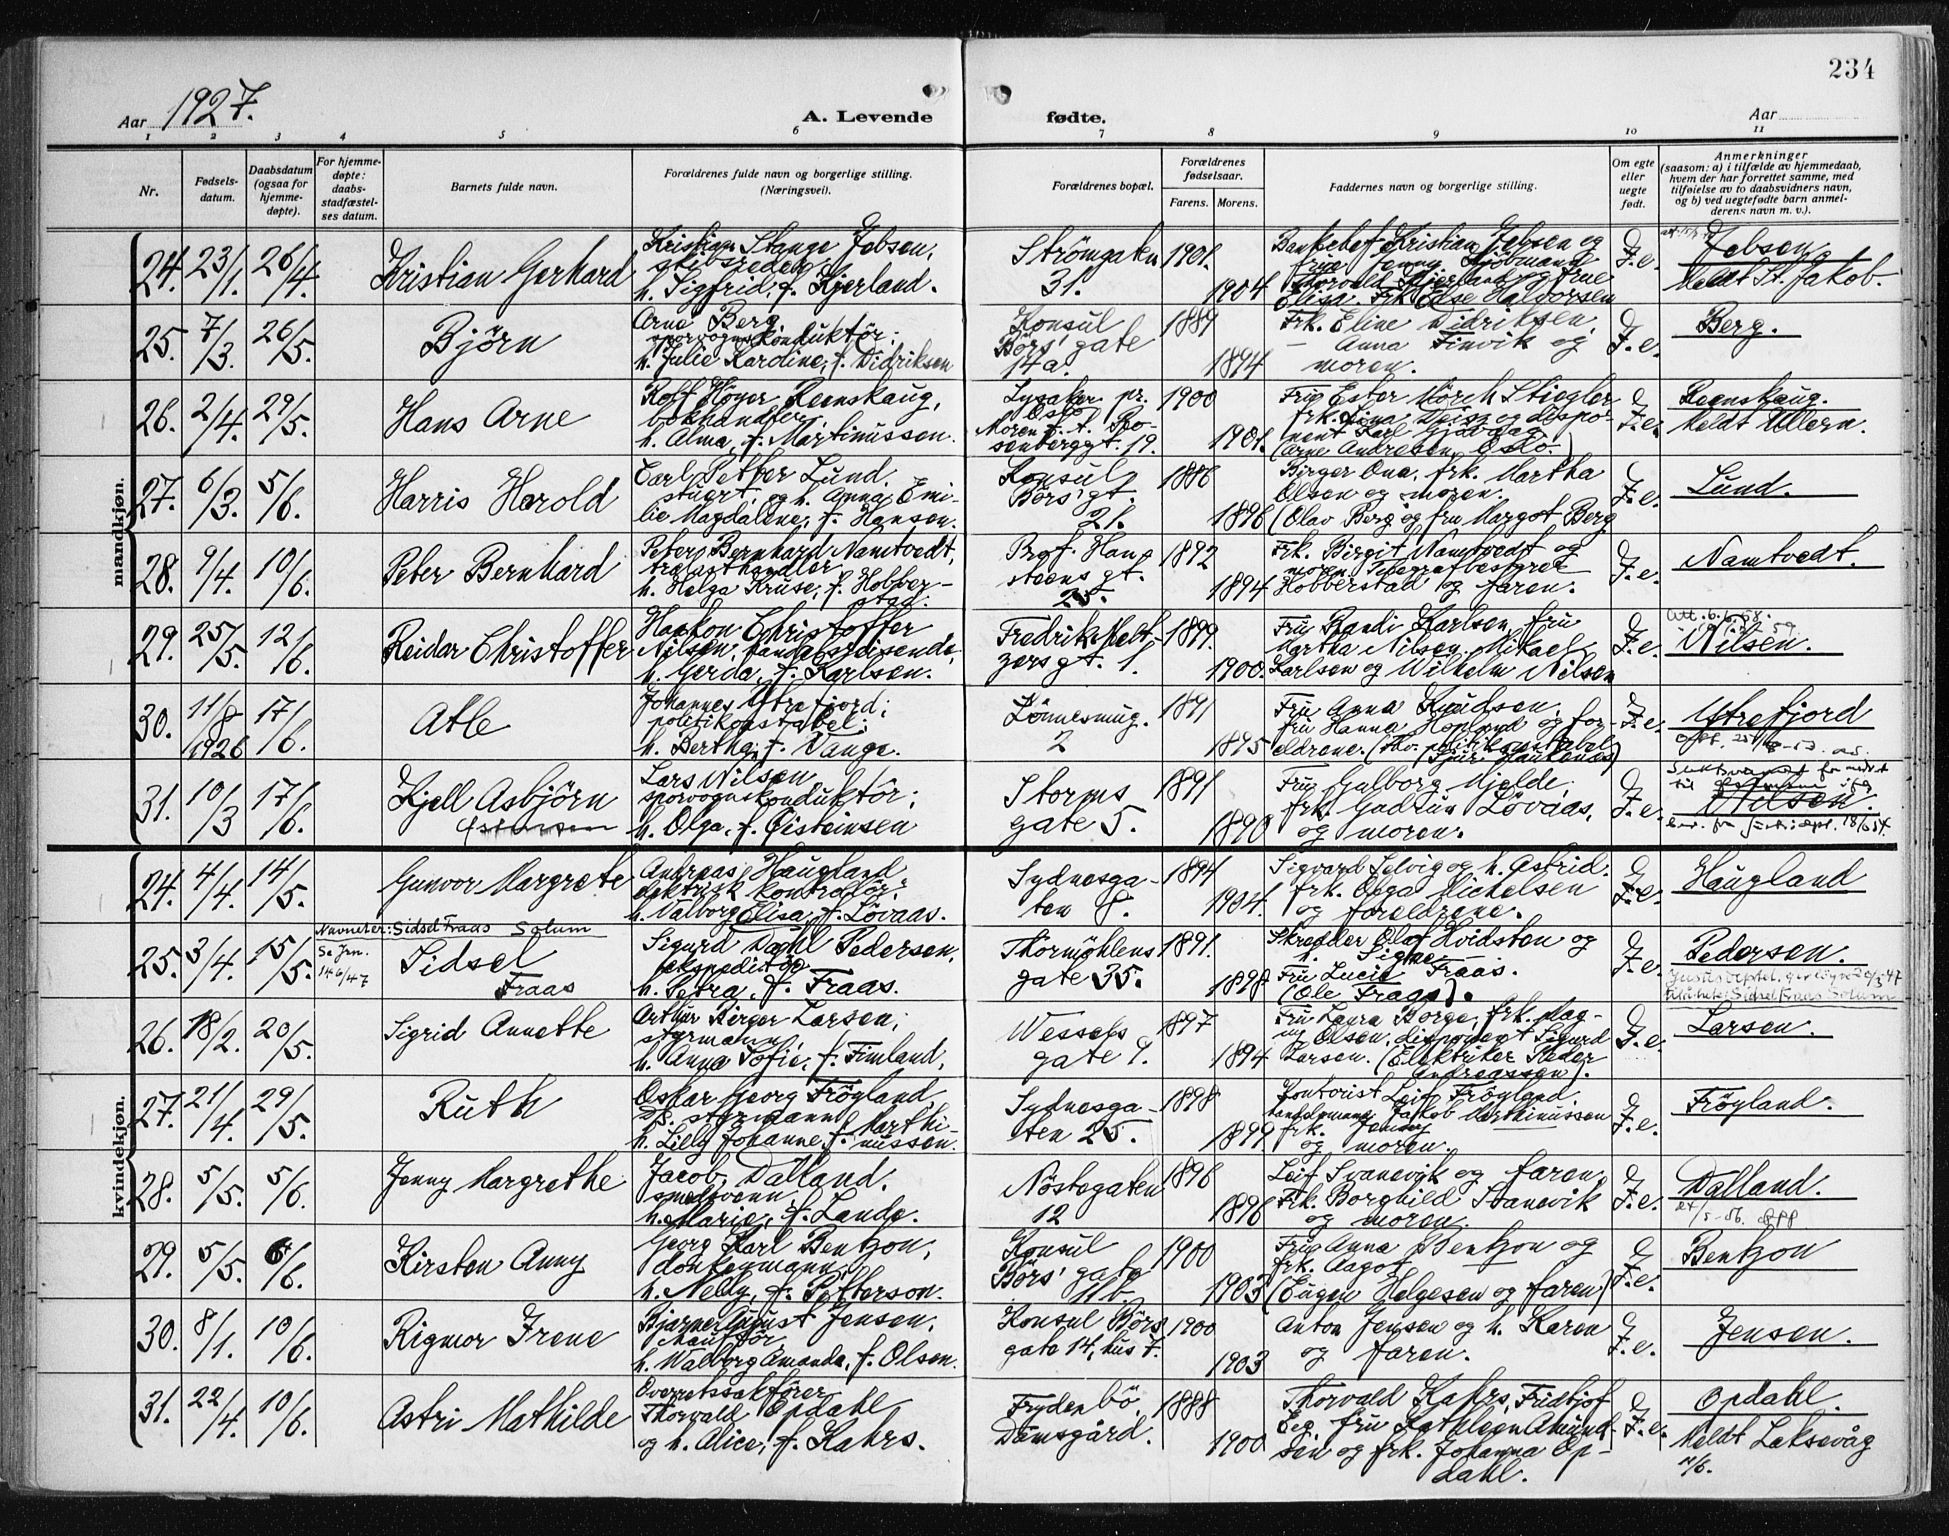 234
Aar 1927.
A. Levende fødte.
Aar
1 2 3 4 5 6 7 8 9 10 11
Nr.
Fødsels-
datum.
Daabsdatum
(ogsaa for
hjemme-
døpte).
For hjemme-
døpte:
daabs-
stadfæstel-
ses datum.
Barnets fulde navn.
Forældrenes fulde navn og borgerlige stilling.
(Næringsvei).
Forældrenes bopæl.
Forældrenes
fødselsaar.
Farens. Morens.
Faddernes navn og borgerlige stilling.
Om egte
eller
uegte
født.
Anmerkninger
(saasom: a) i tilfælde av hjemmedaab,
hvem der har forrettet samme, med
tilføielse av to daabsvidners navn,
og b) ved uegtefødte barn anmel-
derens navn m. v.).
mandkjøn.
24. 23/1. 26/4. Kristian Gerhard
Kristian Stange Jebsen,
skibsreder,
h. Sigfrid, f. Kjerland.
Strömgaten
31.
1901.
1904
Banksjef Kristian Jebsen og
frue Jenny, Kjöbmand
Thorvald Kjerland og frue
Elisa. Frk. Else Halvorsen
J.e.
Jebsen
Meldt St. Jakob.
25. 7/3. 26/5. Björn
Arne Berg,
sporvognskonduktör;
h. Julie Kardine, f. Didriksen
Konsul
Börs' gate
14a.
1887
1894
Frk. Eline Didriksen,
– Anna Finvik og
moren.
J.e.
Berg.
26. 2/4. 29/5. Hans Arne
Rolf Höyer Reenskaug,
bokhandler,
h. Alma, f. Martinussen.
Lysaker pr.
Oslo
Moren f. t. Ro-
senberggt. 19.
1900
1901.
Fru Ester Mörch Stiegler
frk. Lina Weisz og dispo-
nent Karl
(Arne Andresen, Oslo.)
J.e.
Reenskaug.
Meldt Ullern.
27. 6/3. 5/6. Harris Harold
Carl Petter Lund.
stuert, og h. Anna Emi-
lie Magdalene, f. Hansen.
Konsul
Börs' gt.
21.
1886
1896
Birger Ona, frk. Martha
Olsen og moren.
(Olav Berg og fru Margot Berg
J.e.
Lund.
28. 9/4. 10/6. Peter Bernhard
Peter Bernhard Namtvedt,
trælasthandler,
h. Helga Kruse, f. Hobber-
stad.
Prof. Han-
steens gt.
25.
1892
1894
Frk. Birgit Namtvedt og
moren. Telegrafbestyrer
Hobberstad og faren.
J.e.
Namtvedt.
29. 25/5. 12/6. Reidar Christoffer
Haakon Christoffer
Nilsen, handelsreisende,
h. Gerda, f. Karlsen.
Fredrik Melt-
zersgt. 1.
1899.
1900.
Fru Randi Karlsen, fru
Martha Nilsen. Mikael
Karlsen og Wilhelm Nilsen
J.e.
Att. 6.6.58.
Nilsen.
30. 11/8 1926 17/6. Atle
Johannes Ytrefjord;
politikonstabel;
h. Bertha, f. Vange.
Lönnesmug.
2
1891
1895
Fru Anna Knudsen,
fru Hanna Hopland og for-
eldrene. (Fhv. politikonstabel
J.e.
Ytrefjord
31. 10/3 17/6. Kjell Asbjörn
Lars Nilsen
sporvognskonduktör;
h. Olga, f. Øisteinsen
Storms
gate 5.
1891
1890
Fru Gulborg Mjelde,
frk. Gudrun Lövaas,
og moren.
J.e.
Nilsen.
kvindekjøn.
24. 4/4. 14/5. Gunvor Margrete
Andreas Haugland
elektrisk kontrollör;
h. Valborg Elisa, f. Lövaas.
Sydnesga-
ten 8.
1894
1904.
Sigvard Selvig og h. Astrid.
frk. Olga Michelsen
og foreldrene.
J.e.
Haugland
Navnet er: Sidsel Fraas Solum
25. 3/4. 15/5. Se Jrn.
146/47
Sidsel
Fraas
Sigurd Dahl Pedersen,
ekspeditör
h. Petra, f. Fraas.
Thormöhlens
gate 35.
1891.
1898
Skredder Olaf Hvidsten og
h. Signe,
Fru Lucie Fraas.
(Ole Fraas).
J.e.
Pedersen.
26. 18/2. 20/5. Sigrid Annette
Arthur Birger Larsen;
styrmann,
h. Anna Sofie, f. Fimland,
Wessels
gate 9.
1897
1894
Fru Laura Borge, frk. Mag-
ny Olsen, disponent Sigurd
Larsen. (Elektriker Peder
Andreassen).
J.e.
Larsen.
27. 21/4. 29/5. Ruth
Oskar Georg Fröyland,
styrmann,
h. Lilly Johanne, f. Marthi-
nussen.
Sydnesga-
ten 25.
1898
1899.
Kontorist Leif Fröyland.
Jakob Marthinussen
frk. Jenny
og moren.
J.e.
Fröyland.
28. 5/5. 5/6. Jenny Margrethe
Jacob Dalland.
smedsvenn,
h. Marie, f. Lande.
Nöstegaten
12
1896
1896
Leif Svanevik og faren,
Frk. Borghild Svanevik
og moren.
J.e.
Dalland.
29. 5/5. 6/6. Kirsten Anny
Georg Karl Bentzon,
donkeymann,
h. Nelly, f. Petterson.
Konsul
Börs' gate
11b.
1900
1903
Fru Anna Bentzon og
frk. Aagot
(Eugen Helgesen og faren)
J.e.
Bentzon
30. 8/1. 10/6. Rigmor Irene
Bjarne August Jensen,
montör
h. Walborg Amanda, f. Olsen.
Konsul Börs
gate 14, hus 7.
1900
1903
Anton Jensen og h. Karen
og faren.
J.e.
Jensen.
31. 22/4. 10/6. Astri Mathilde
Overretssakförer
Thorvald Opdahl
og h. Alice, f. Kahrs.
Frydenbö,
Damsgård.
1888
1900
Thorvald Kahrs, Fridtjof
Eeg, fru Kathleen Amund-
sen og frk. Johanna Op-
dahl.
J.e.
Opdahl.
Meldt Laksevåg
11/6.